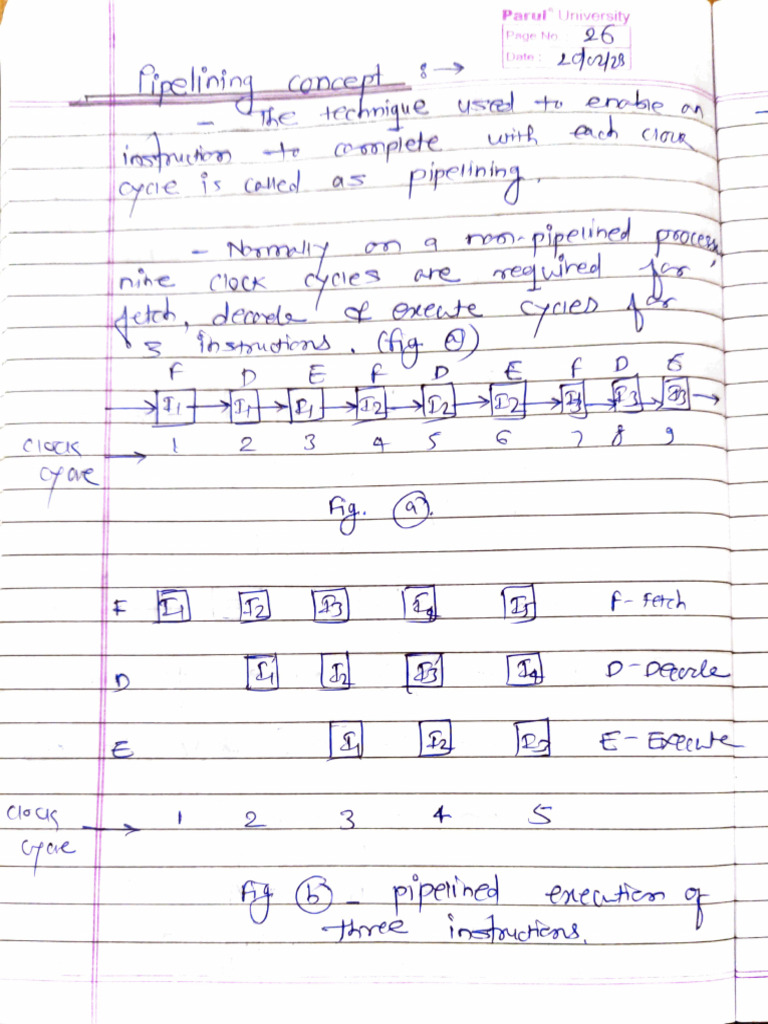 Parul® University
Page No : 26
Date : 20/02/23
Pipelining concept :→
- The technique used to enable an
instruction to complete with each clock
cycle is called as pipelining.
- Normally on a non-pipelined process,
nine clock cycles are required for
fetch, decode & execute cycles for
3 instructions. (fig (a))
F D E F D E F D E
I1 I1 I1 I2 I2 I2 I3 I3 I3
Clock cycle → 1 2 3 4 5 6 7 8 9
Fig. (a).
F I1 I2 I3 I4 I5 F - Fetch
D I1 I2 I3 I4 D - Decode
E I1 I2 I3 E - Execute
Clock cycle → 1 2 3 4 5
Fig (b) - pipelined execution of
three instructions.